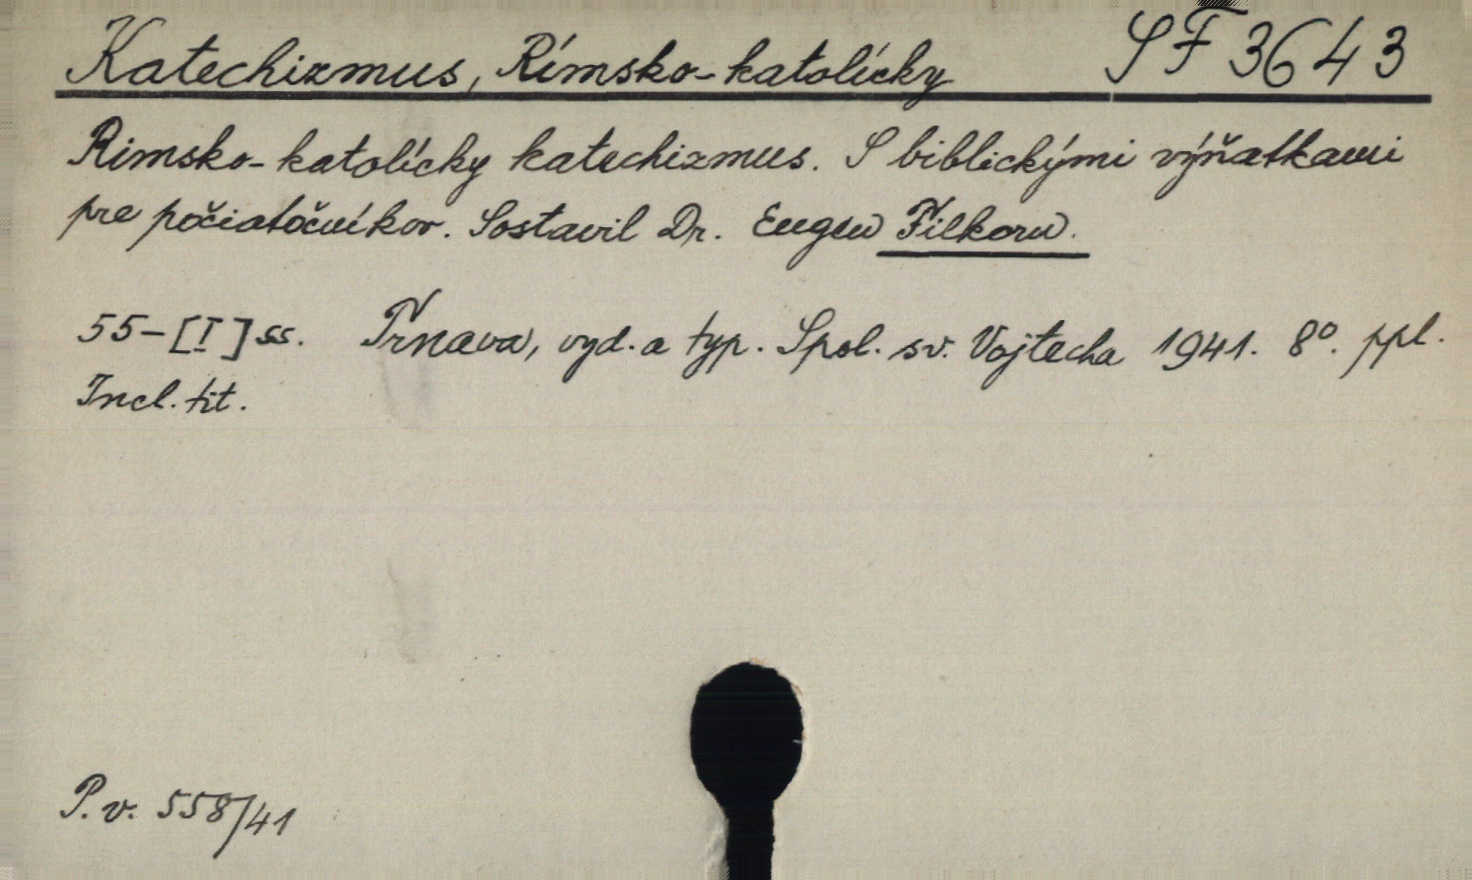 Katechizmus, Rímsko-katolícky SF 3643
Rimsko-katolícky katechizmus. S biblickými výňatkami
pre počiatočníkov. Sostavil Dr. Eugen Filkorn.
55-[I] ss. Trnava, vyd. a typ. Spol. sv. Vojtecha 1941. 8º. ppl.
Incl. tit.
P. v. 558/41